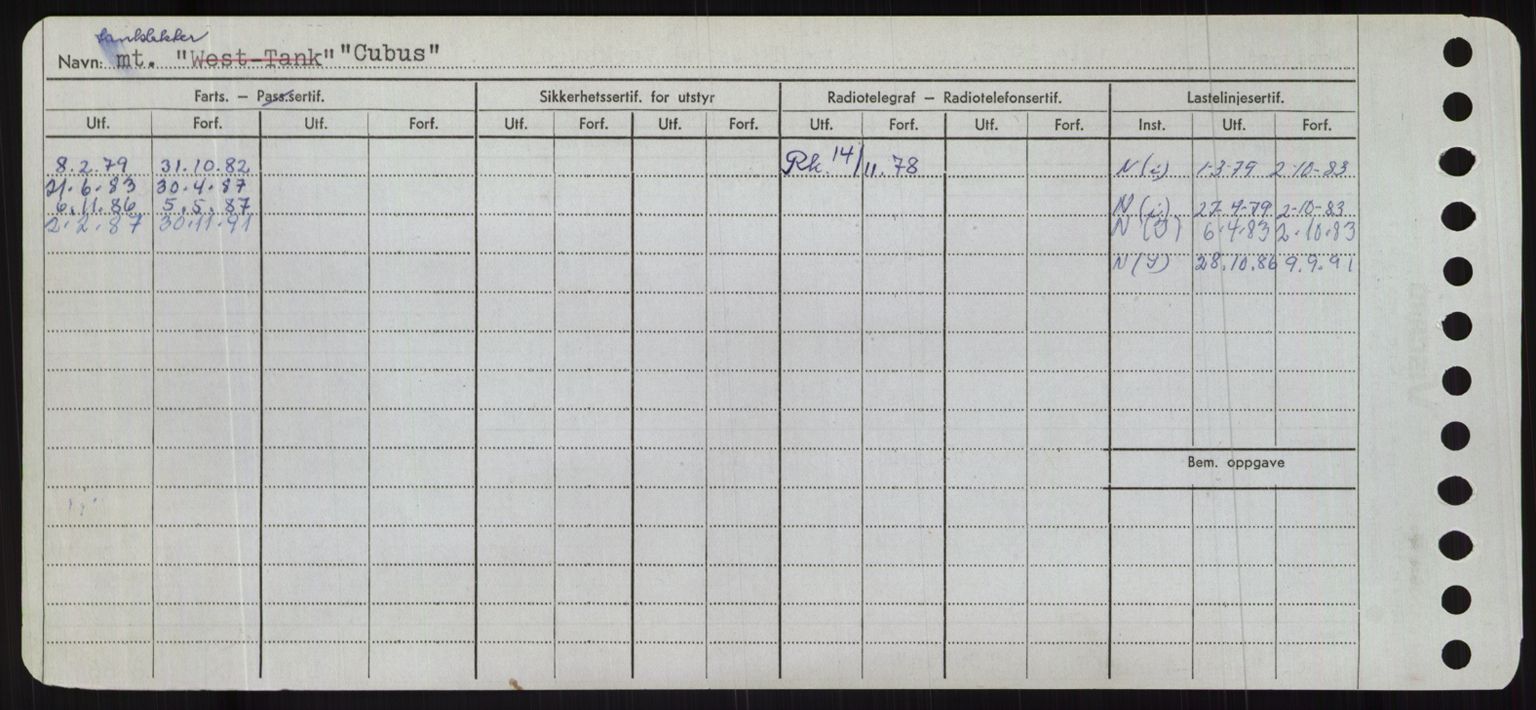 tanklekter
Navn: mt. "West-Tank" "Cubus"
Farts. — Pass.sertif. Sikkerhetssertif. for utstyr Radiotelegraf — Radiotelefonsertif. Lastelinjesertif.
Utf. Forf. Utf. Forf. Utf. Forf. Utf. Forf. Utf. Forf. Utf. Forf. Inst. Utf. Forf.
8.2.79 31.10.82 Rk. 14/11.78 N(i) 1-3-79 2-10-83
21.6.83 30.4.87
6.11.86 5.5.87 N(i) 27-4-79 2-10-83
2.2.87 30.11.91 N 6.4.83 2.10.83
N 28.10.86 9.9.91
Bem. oppgave